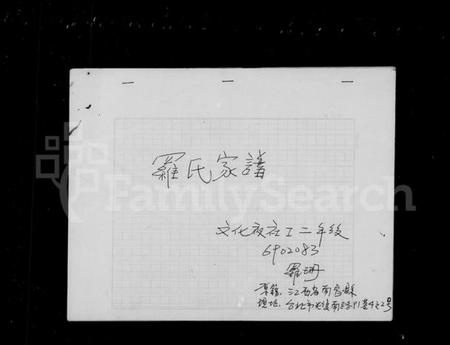 羅氏家譜
文化夜社工二年級
6902083
羅珊
原籍：江西省南昌縣
地址：台北市
FamilySearch